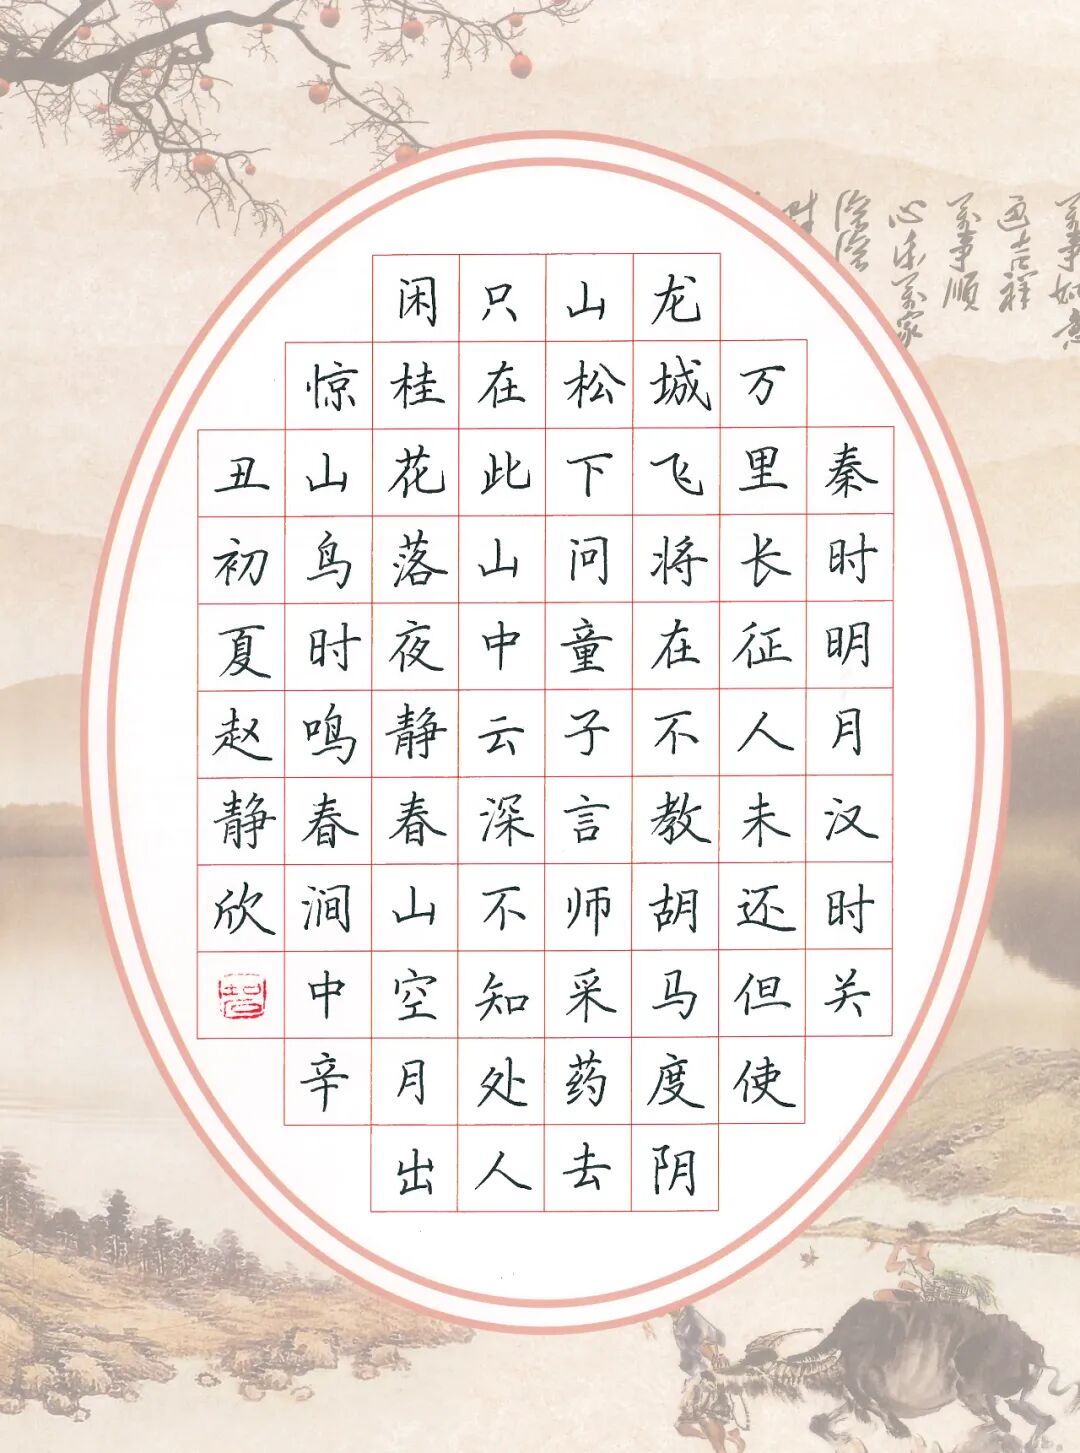 萬事如意
吉祥
萬事順
秦时明月汉时关
万里长征人未还但使
龙城飞将在不教胡马度阴
山松下问童子言师采药去
只在此山中云深不知处人
闲桂花落夜静春山空月出
惊山鸟时鸣春涧中辛
丑初夏赵静欣